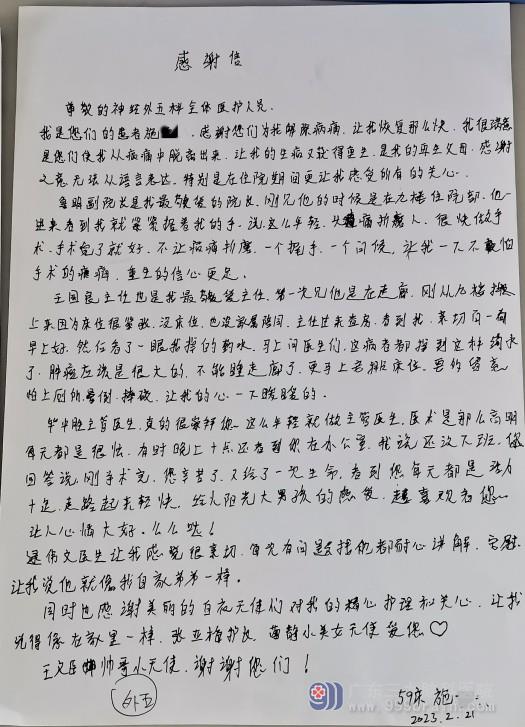 感谢信
尊敬的神经外五科全体医护人员.
我是您们的患者施 . 感谢您们为我解除病痛. 让我恢复那么快. 我很满意
是您们使我从病痛中脱离出来. 让我的生病又获得重生. 是我的再生父母. 感谢
之意无法从语言表达. 特别是在住院期间更让我感受所有的关心.
鲁明副院长是我最敬佩的院长. 刚见他的时候是在九楼住院部. 他
进来看到我就紧紧握着我的手. 说这么年轻. 头痛折磨人. 很快做手
术. 手术完了就好. 不让病痛折磨. 一个握手. 一个问候. 让我一下不怕
手术的疼痛. 重生的信心更足.
王国良主任也是我最敬佩主任. 第一次见他是在走廊. 刚从九楼搬
上来因为床位很紧张. 没床位. 也没家属陪同. 主任过来查房. 看到我. 亲切问一声
早上好. 然后看了一眼我掉的药水. 马上问医生们. 这病者都掉到这种药水
了. 肿瘤应该是很大的. 不能睡走廊了. 要马上安排床位. 要的
怕上厕所晕倒. 摔破. 让我的心一下暖暖的.
毕中胜主管医生. 真的很崇拜您. 这么年轻就做主管医生. 医术是那么高明
每天都是很忙. 有时晚上十点还看到你在办公室. 我说还没下班. 您
回答说. 刚手术完. 您辛苦了. 又给了一次生命. 看到您每天都是活力
十足. 走路起来轻快. 给人阳光大男孩的感觉. 超喜观看您
让人心情大好. 么么哒!
寇伟文医生让我感觉很亲切. 每次有问题找他都耐心讲解. 安慰
让我说他就像我自家弟弟一样.
同时也感谢美丽的白衣天使们对我的精心护理和关心. 让我
觉得像在家里一样. 张亚梅护长. 苗静小美女天使爱您♡
帅哥小天使. 谢谢您们!
外五
59床 施
2023.2.21
广东三九脑科医院
www.999brain.com